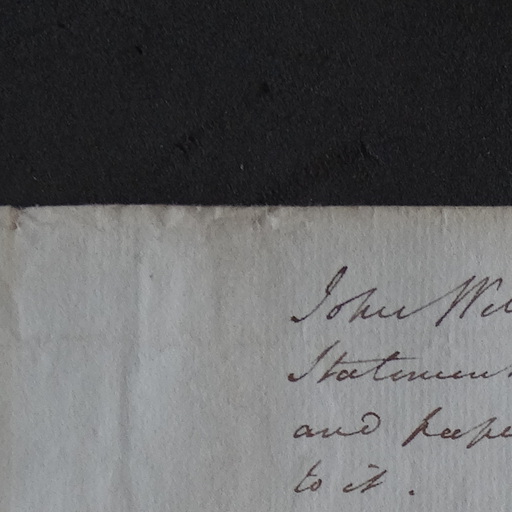 John Wel
Statement
and pape
to it.